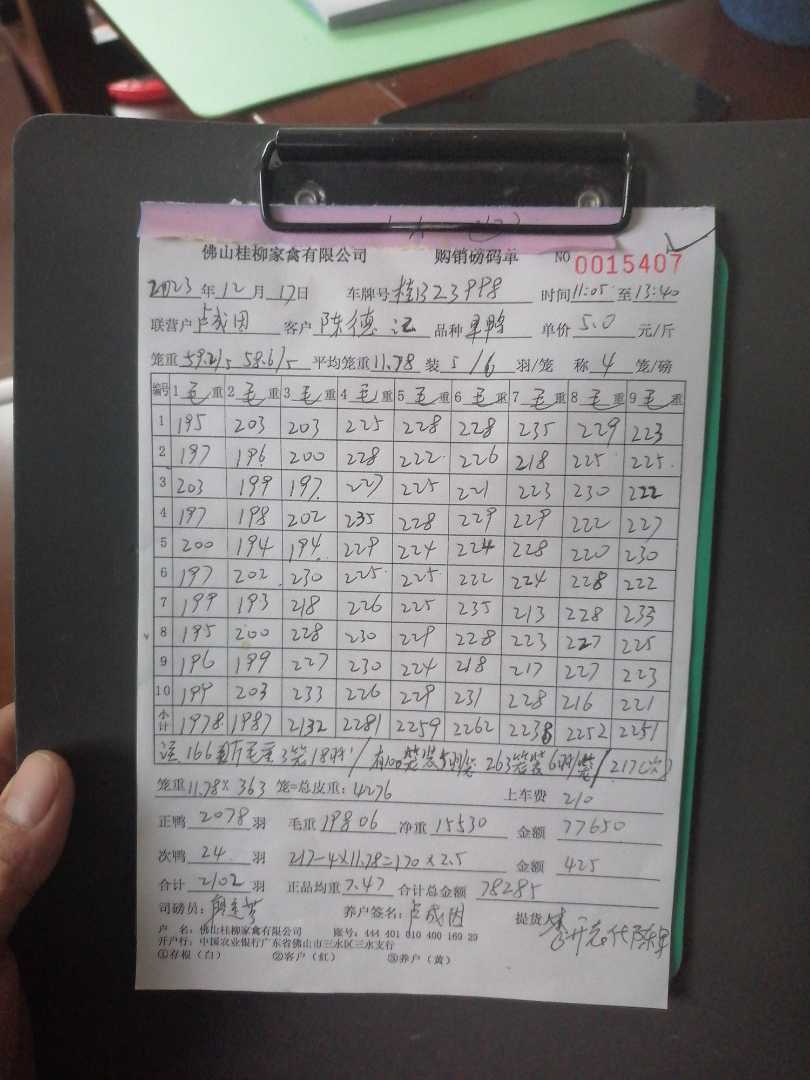 佛山桂柳家禽有限公司 购销磅码单 NO 0015407
2023 年 12 月 17 日 车牌号 桂B23998 时间 11:05 至 13:40
联营户 卢成因 客户 陈德 品种 单价 5.0 元/斤
笼重 59.2/5 58.6/5 平均笼重 11.78 装 5/6 羽/笼 称 4 笼/磅
编号 1 毛 重 2 毛 重 3 毛 重 4 毛 重 5 毛 重 6 毛 重 7 毛 重 8 毛 重 9 毛 重
1 195 203 203 225 228 228 235 229 223
2 197 196 200 228 222 226 218 225 225
3 203 199 197 227 225 221 223 230 222
4 197 198 202 235 228 229 229 222 227
5 200 194 194 229 224 224 228 220 230
6 197 202 230 225 225 222 224 228 222
7 199 193 218 226 225 235 213 228 233
8 195 200 228 230 229 228 223 227 225
9 196 199 227 230 224 218 217 227 223
10 199 203 233 226 229 231 228 216 221
小计 1978 1987 2132 2281 2259 2262 2238 2252 2251
166 毛重 3笼 18羽 / 有100 装5羽 263 装6羽 / 217(次)
笼重 11.78 × 363 笼=总皮重: 4276 上车费 210
正鸭 2078 羽 毛重 19806 净重 15530 金额 77650
次鸭 24 羽 217-4×11.78=170×2.5 金额 425
合计 2102 羽 正品均重 7.47 合计总金额 78285
司磅员: 养户签名: 卢成因 提货人 李开 代陈
户 名: 佛山桂柳家禽有限公司 账号: 444 401 010 400 169 29
开户行: 中国农业银行广东省佛山市三水区三水支行
①存根(白) ②客户(红) ③养户(黄)